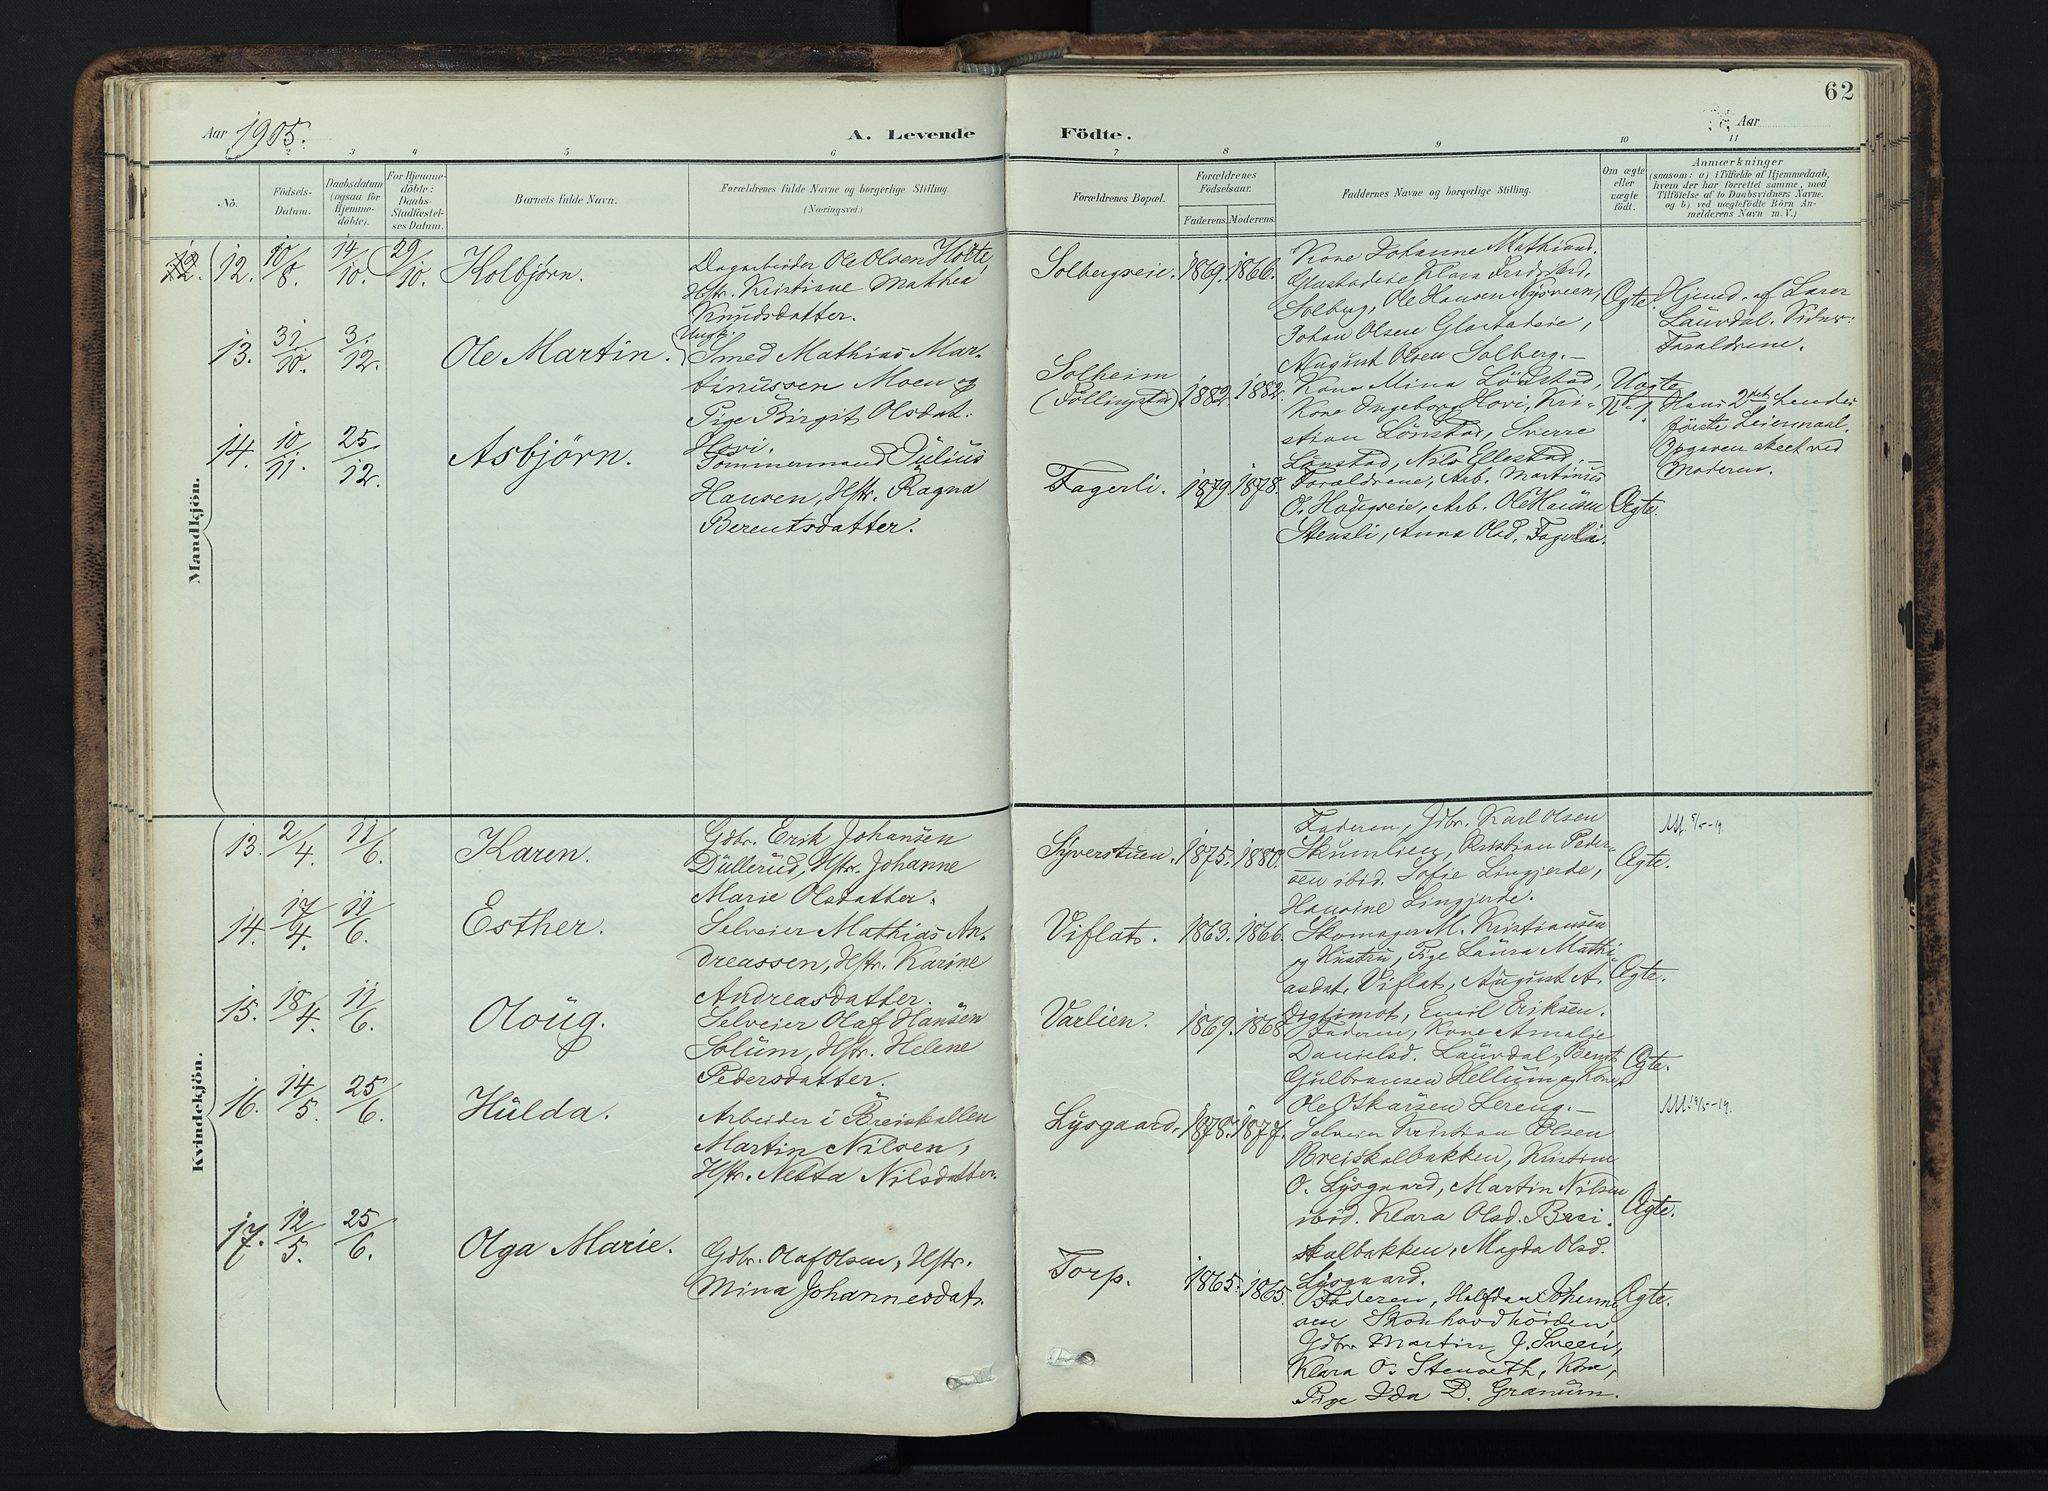 62
Aar 1905.
A. Levende Födte.
Aar
1 2 3 4 5 6 7 8 9 10 11
No.
Födsels-Datum.
Daabsdatum (ogsaa for Hjemmedöbte).
For Hjemmedöbte: Daabs-Stadfæstelses Datum.
Barnets fulde Navn.
Forældrenes fulde Navne og borgerlige Stilling.
(Næringsvei.)
Forældrenes Bopæl.
Forældrenes Födselsaar.
Faderens. Moderens.
Faddernes Navne og borgerlige Stilling.
Om ægte eller uægte födt.
Anmærkninger
(saasom: a) i Tilfælde af Hjemmedaab,
hvem der har forrettet samme, med
Tilföielse af to Daabsvidners Navne,
og b) ved uægtefödte Börn An-
melderens Navn m. V.)
Mandkjön.
12. 10/8. 14/10. 29/10. Kolbjörn.
Dagarbeider Ole Olsen Holte,
Hstr. Kristiane Mathea
Knudsdatter.
Solbergseie. 1869. 1866.
Kone Johanne Mathiasd.
Glæstadeie, Klara Fredriksd.
Solberg, Ole Hansen Nysveen,
Johan Olsen Glæstadeie,
August Olsen Solberg.—
Ægte.
Hjemd. af Lærer
Laurdal. Vidner:
Forældrene.
13. 31/10. 3/12. Ole Martin.
Ungk.
Smed Mathias Mar-
tinussen Moen og
Pige Birgit Olsdat.
Hovi.
Solheim
(Föllingstad) 1882. 1882.
Kone Mina Lönstad,
Kone Ingeborg Hovi, Kri-
stian Lönstad, Sverre
Lönstad, Nils Ellestad.—
Uægte
No 1.
Hans 2det hendes
förste Leiermaal.
Opgaven skeet ved
Moderen.
14. 10/11. 25/12. Asbjörn.
Tömmermand Julius
Hansen, Hstr. Ragna
Berentsdatter.
Fagerli. 1879. 1878.
Forældrene, Arb. Martinus
O. Haugseie, Arb. Ole Hansen
Stensli, Anna Olsd. Fagerli.
Ægte.
Kvindekjön.
13. 2/4. 11/6. Karen.
Gdbr. Erik Johansen
Düllerud, Hstr. Johanne
Marie Olsdatter.
Syverstuen. 1875. 1880.
Faderen, Gdbr. Karl Olsen
Skumlien, Kristian Peder-
sen ibid. Sofie Lingjerde,
Hansine Lingjerde.
Ægte.
Att. 5/5-19.
14. 17/4. 11/6. Esther.
Selveier Mathias An-
dreassen, Hstr. Karine
Andreasdatter.
Viflat. 1863. 1866.
Skomager M. Kristiansen
og Hustru, Pige Laura Mathi-
asdat. Viflat, August A.
Digtimot, Emil Eriksen.
Ægte.
15. 18/4. 11/6. Olöug.
Selveier Olaf Hansen
Solum, Hstr. Helene
Pedersdatter.
Varlien. 1869. 1868.
Faderen, Kone Amalie
Danielsd. Laurdal, Bernt
Gulbransen Hellum og Kone,
Ole Oskarsen Lereng.—
Ægte.
16. 14/5. 25/6. Hulda.
Arbeider i Breiskallen
Martin Nilsen,
Hstr. Netta Nilsdatter.
Lysgaard. 1878. 1877.
Selveier Kristian Olsen
Breiskalbakken, Kristine
O. Lysgaard, Martin Nilsen
ibid. Klara Olsd. Brei-
skalbakken, Magda Olsd.
Lysgaard.
Ægte.
17. 12/5. 25/6. Olga Marie.
Gdbr. Olaf Olsen, Hstr.
Mina Johannesdat.
Torp. 1865. 1865.
Faderen, Halfdan Johanne-
sen
Gdbr. Martin J. Sveen,
Klara O. Kone,
Pige Ida D. Granum.
Ægte.